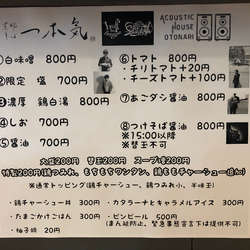 一本気
ACOUSTIC
HOUSE
OTONARI
①白味噌 800円
②限定 塩 700円
③濃厚 鶏白湯 800円
④しお 700円
⑤醤油 700円
⑥トマト 800円
・チリトマト+20円
・チーズトマト+100円
⑦あごダシ醤油 800円
⑧つけそば醤油 800円
※15:00以降
※替玉不可
大盛200円 替玉200円 スープ増200円
特製200円(鶏つみれ、もちもちワンタン、鶏ももチャーシュー追加)
※通常トッピング(鶏チャーシュー、鶏つみれ小、半味玉)
・鶏チャーシュー丼 300円
・たまごかけごはん 300円
・柚子胡 20円
・カタラーナとキャラメルアイス 300円
・ビンビール 500円
(まん延防止、緊急事態宣言下は提供不可)